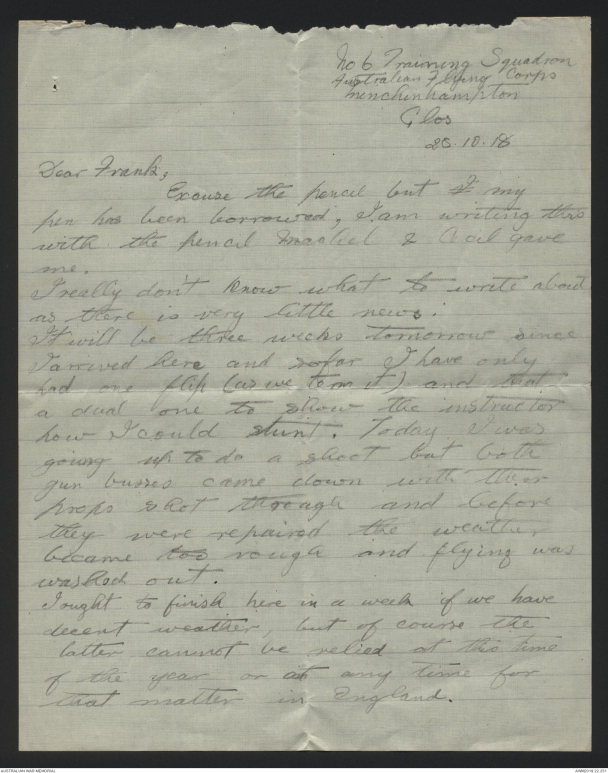 No 6 Training Squadron
Australian Flying Corps
Minchinhampton
Glos
28.10.18
Dear Frank,
Excuse the pencil but I my
pen has been borrowed, I am writing this
with the pencil & Cecil gave
me.
I really don't know what to write about
as there is very little news.
It will be three weeks tomorrow since
I arrived here and sofar I have only
had one flip (as we term it) and that
a dual one to show the instructor
how I could stunt. Today I was
going up to do a shoot but both
gun busses came down with their
props shot through and before
they were repaired the weather
became too rough and flying was
washed out.
I ought to finish here in a week if we have
decent weather, but of course the
latter cannot be relied at this time
of the year or at any time for
that matter in England.
AUSTRALIAN WAR MEMORIAL